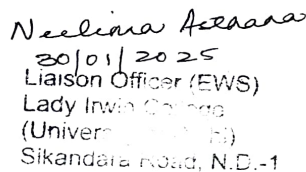 Neelima Asthana
30/01/2025
Liaison Officer (EWS)
Lady Irwin College
(Univer hi)
Sikandara Road, N.D.-1